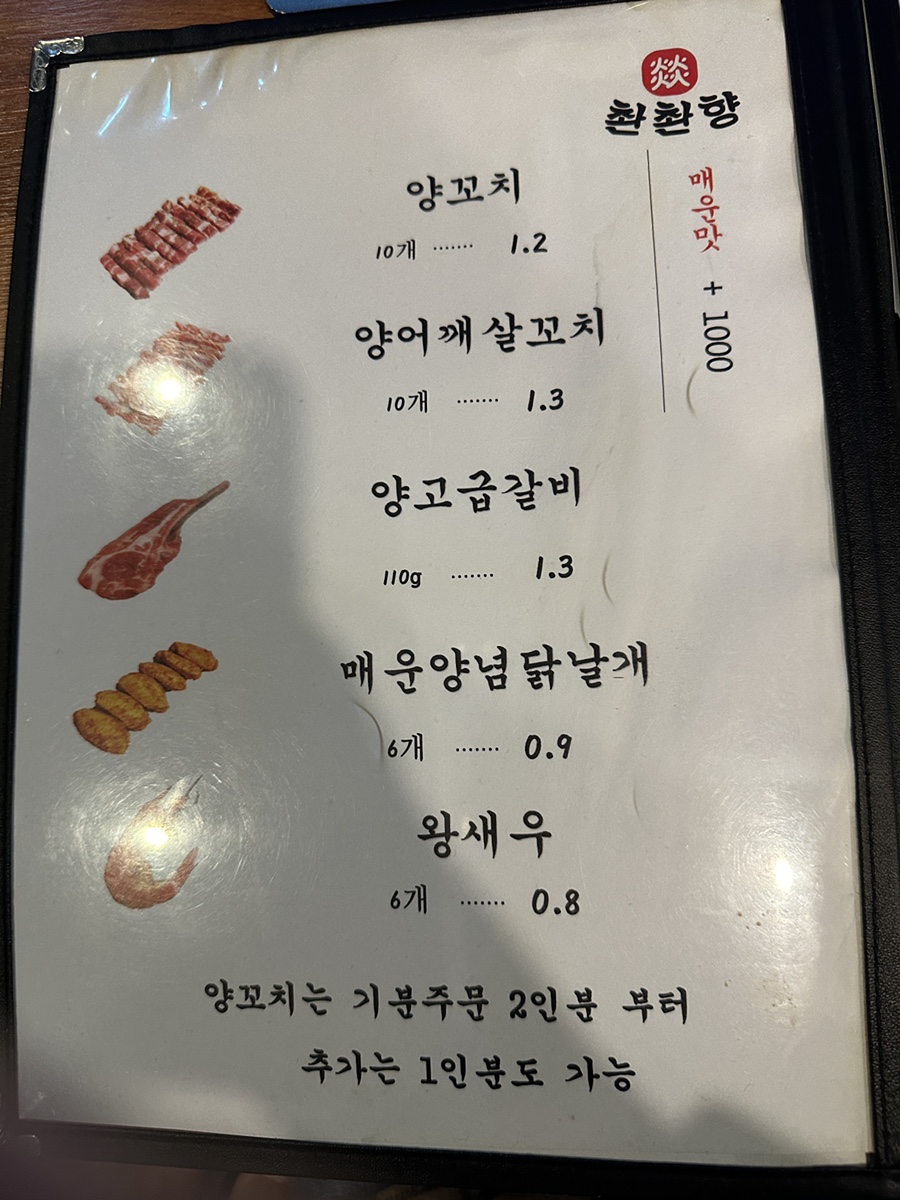 燚
촨촨향
매운맛 + 1000
양꼬치
10개 ······· 1.2
양어깨살꼬치
10개 ······· 1.3
양고급갈비
110g ······· 1.3
매운양념닭날개
6개 ······· 0.9
왕새우
6개 ······· 0.8
양꼬치는 기분주문 2인분 부터
추가는 1인분도 가능